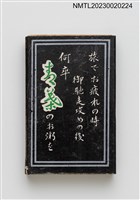 NMTL20230020224
旅でお疲れの時
御馳走攻めの後
何卒
青葉のお粥を